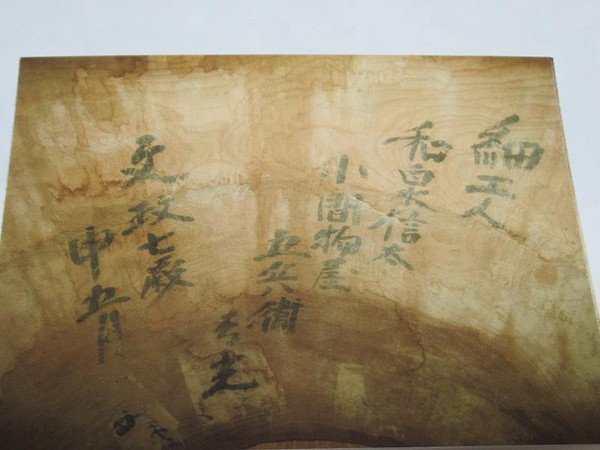 細工人
和泉信太
小間物屋
五兵衛
吉光
文政七歳
申五月